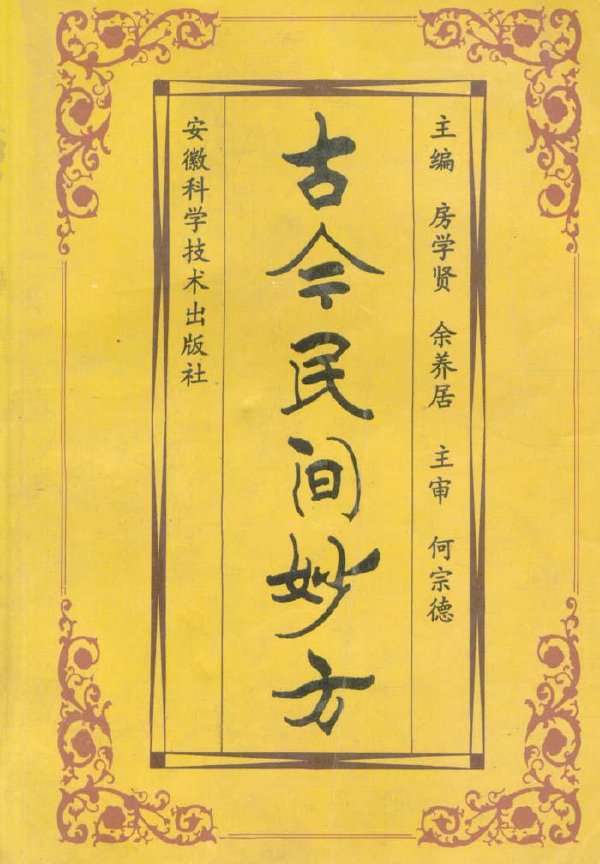 主编 房学贤 余养居 主审 何宗德
古今民间妙方
安徽科学技术出版社